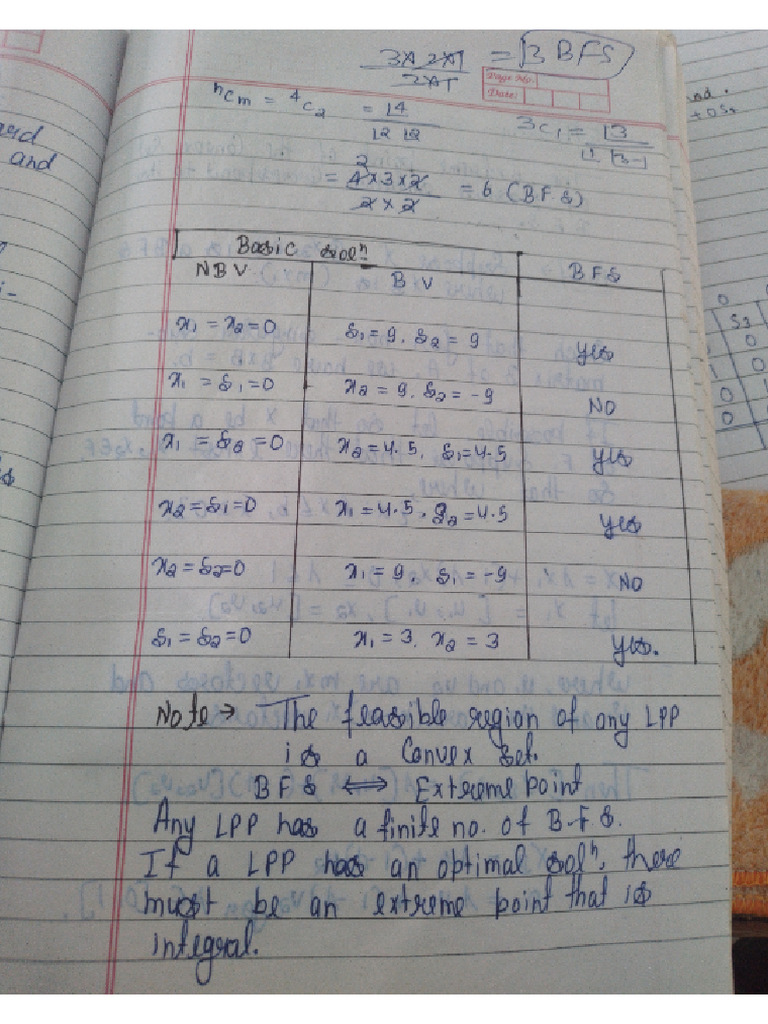 3x 2x1 = 3 BFS
2x1
Page No.
Date:
ⁿCm = ⁴C₂ = |4
|2 |2
3C₁ = |3
|1 |3-1
= 4x3x2 = 6 (BFS)
2x2
2
Basic solⁿ
NBV BV BFS
x₁ = x₂ = 0 s₁ = 9, s₂ = 9 yes
x₁ = s₁ = 0 x₂ = 9, s₂ = -9 NO
x₁ = s₂ = 0 x₂ = 4.5, s₁ = 4.5 yes
x₂ = s₁ = 0 x₁ = 4.5, s₂ = 4.5 yes
x₂ = s₂ = 0 x₁ = 9, s₁ = -9 NO
s₁ = s₂ = 0 x₁ = 3, x₂ = 3 yes.
Note → The feasible region of any LPP
is a Convex set.
BFS ⟺ Extreme point
Any LPP has a finite no. of B.F.S.
If a LPP has an optimal solⁿ, there
must be an extreme point that is
integral.
and
and.
+0S₂
S₃